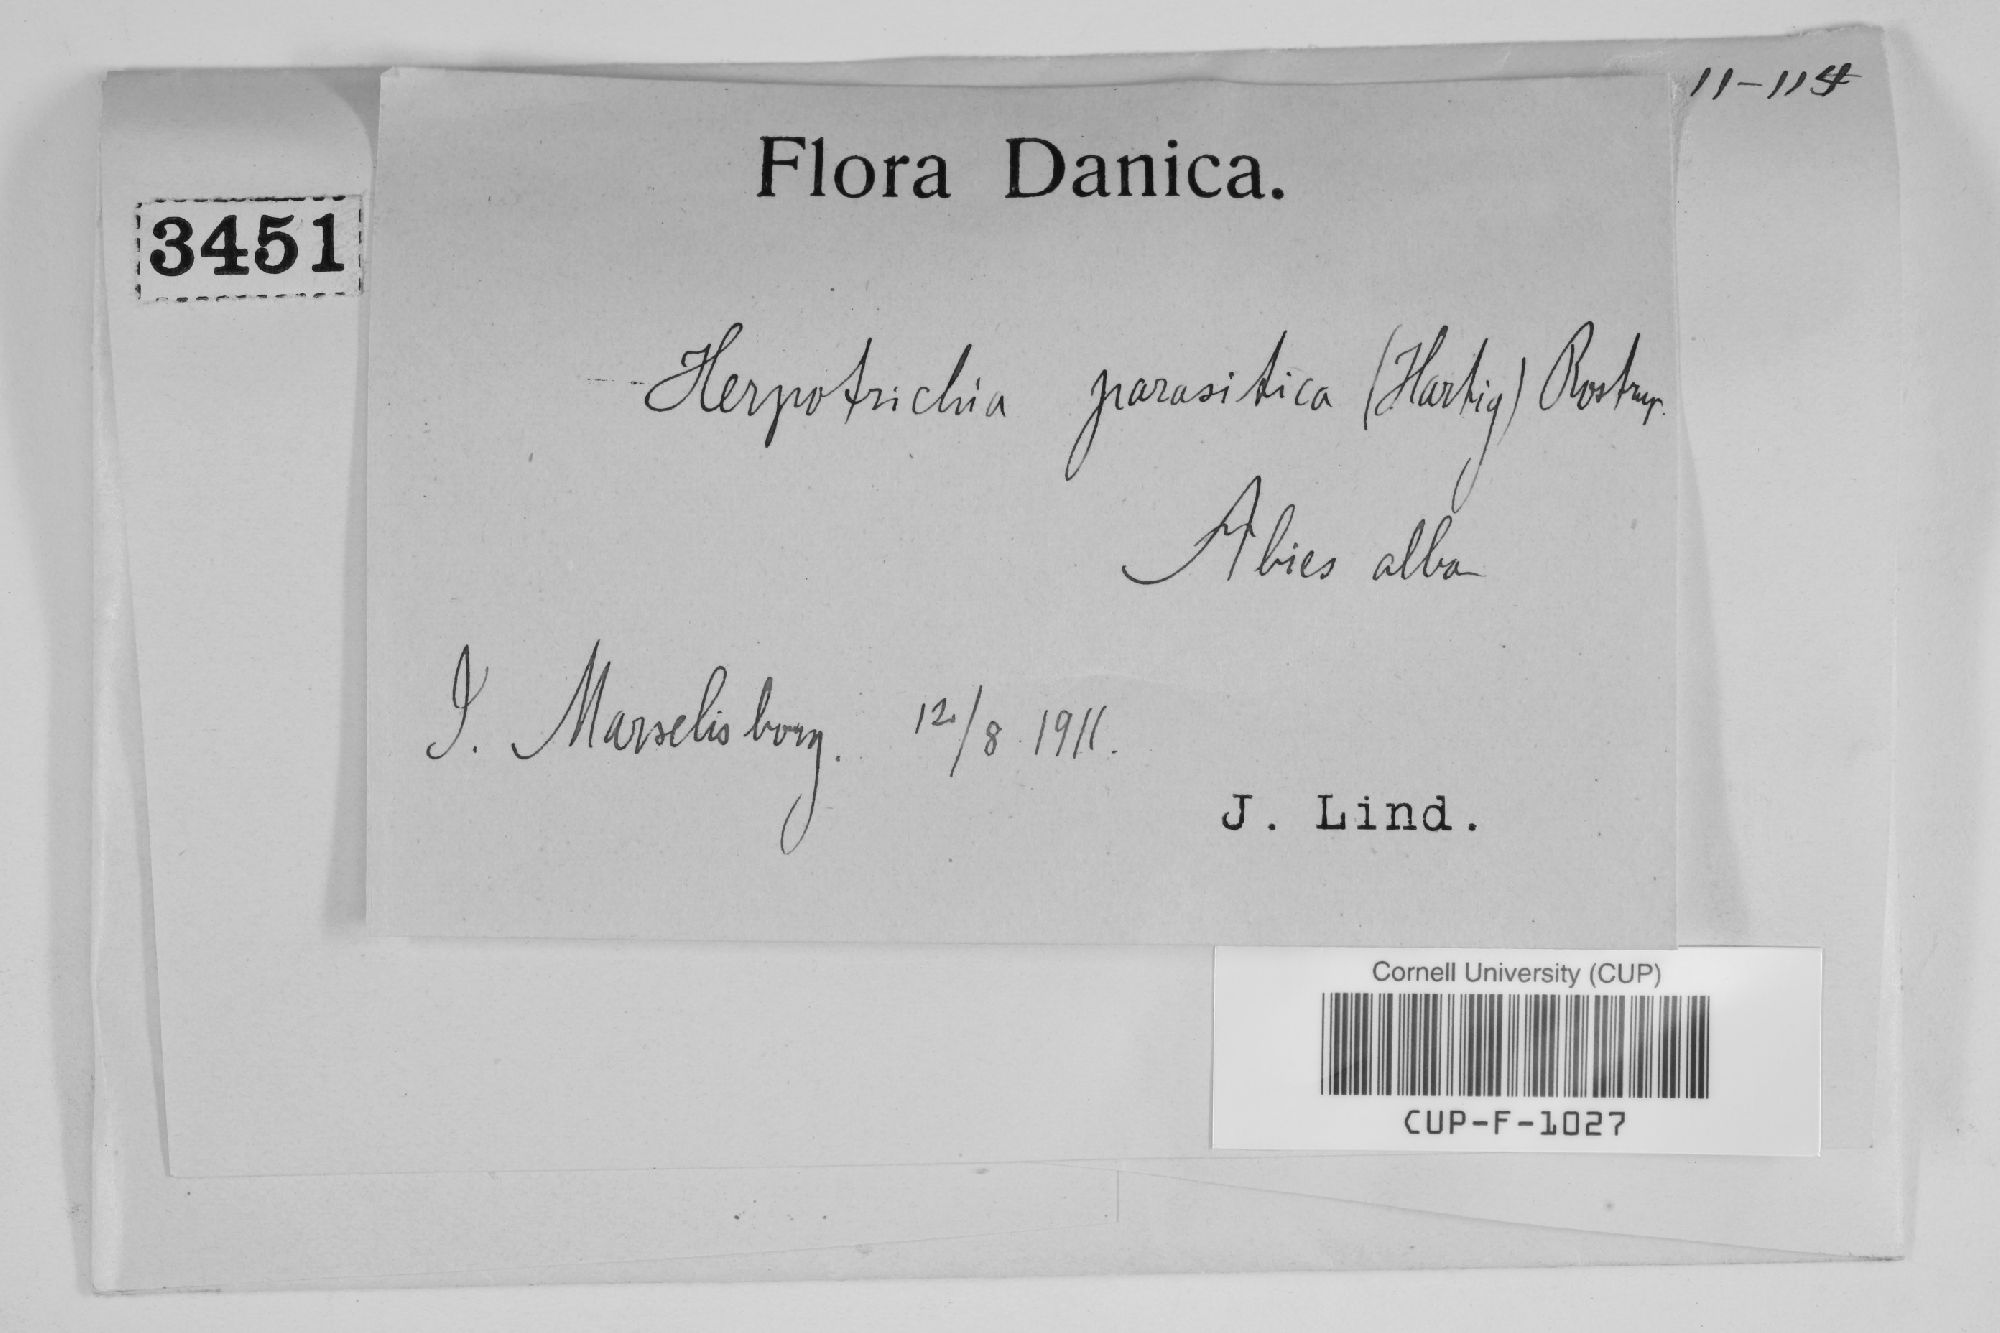 11-114
3451
Flora Danica.
Herpotrichia parasitica (Hartig) Rostrup.
Abies alba
J. Marselisborg. 12/8 1911.
J. Lind.
Cornell University (CUP)
CUP-F-1027